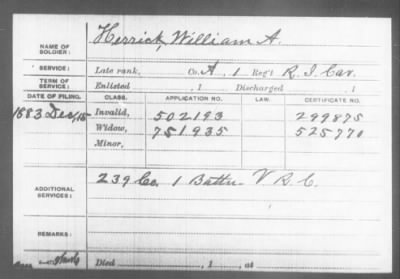 NAME OF SOLDIER: Herrick, William A.
SERVICE: Late rank, Co. A, 1 Reg't R. I. Cav.
TERM OF SERVICE: Enlisted , 1 Discharged , 1
DATE OF FILING. CLASS. APPLICATION NO. LAW. CERTIFICATE NO.
1883 Dec, 15 Invalid, 502193 299875
Widow, 751935 525770
Minor,
ADDITIONAL SERVICES: 239 Co. 1 Battn. V R C.
REMARKS:
Died , 1 , at